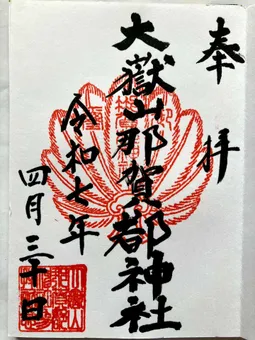 奉拝
大嶽山那賀都神社
令和七年
四月三十日